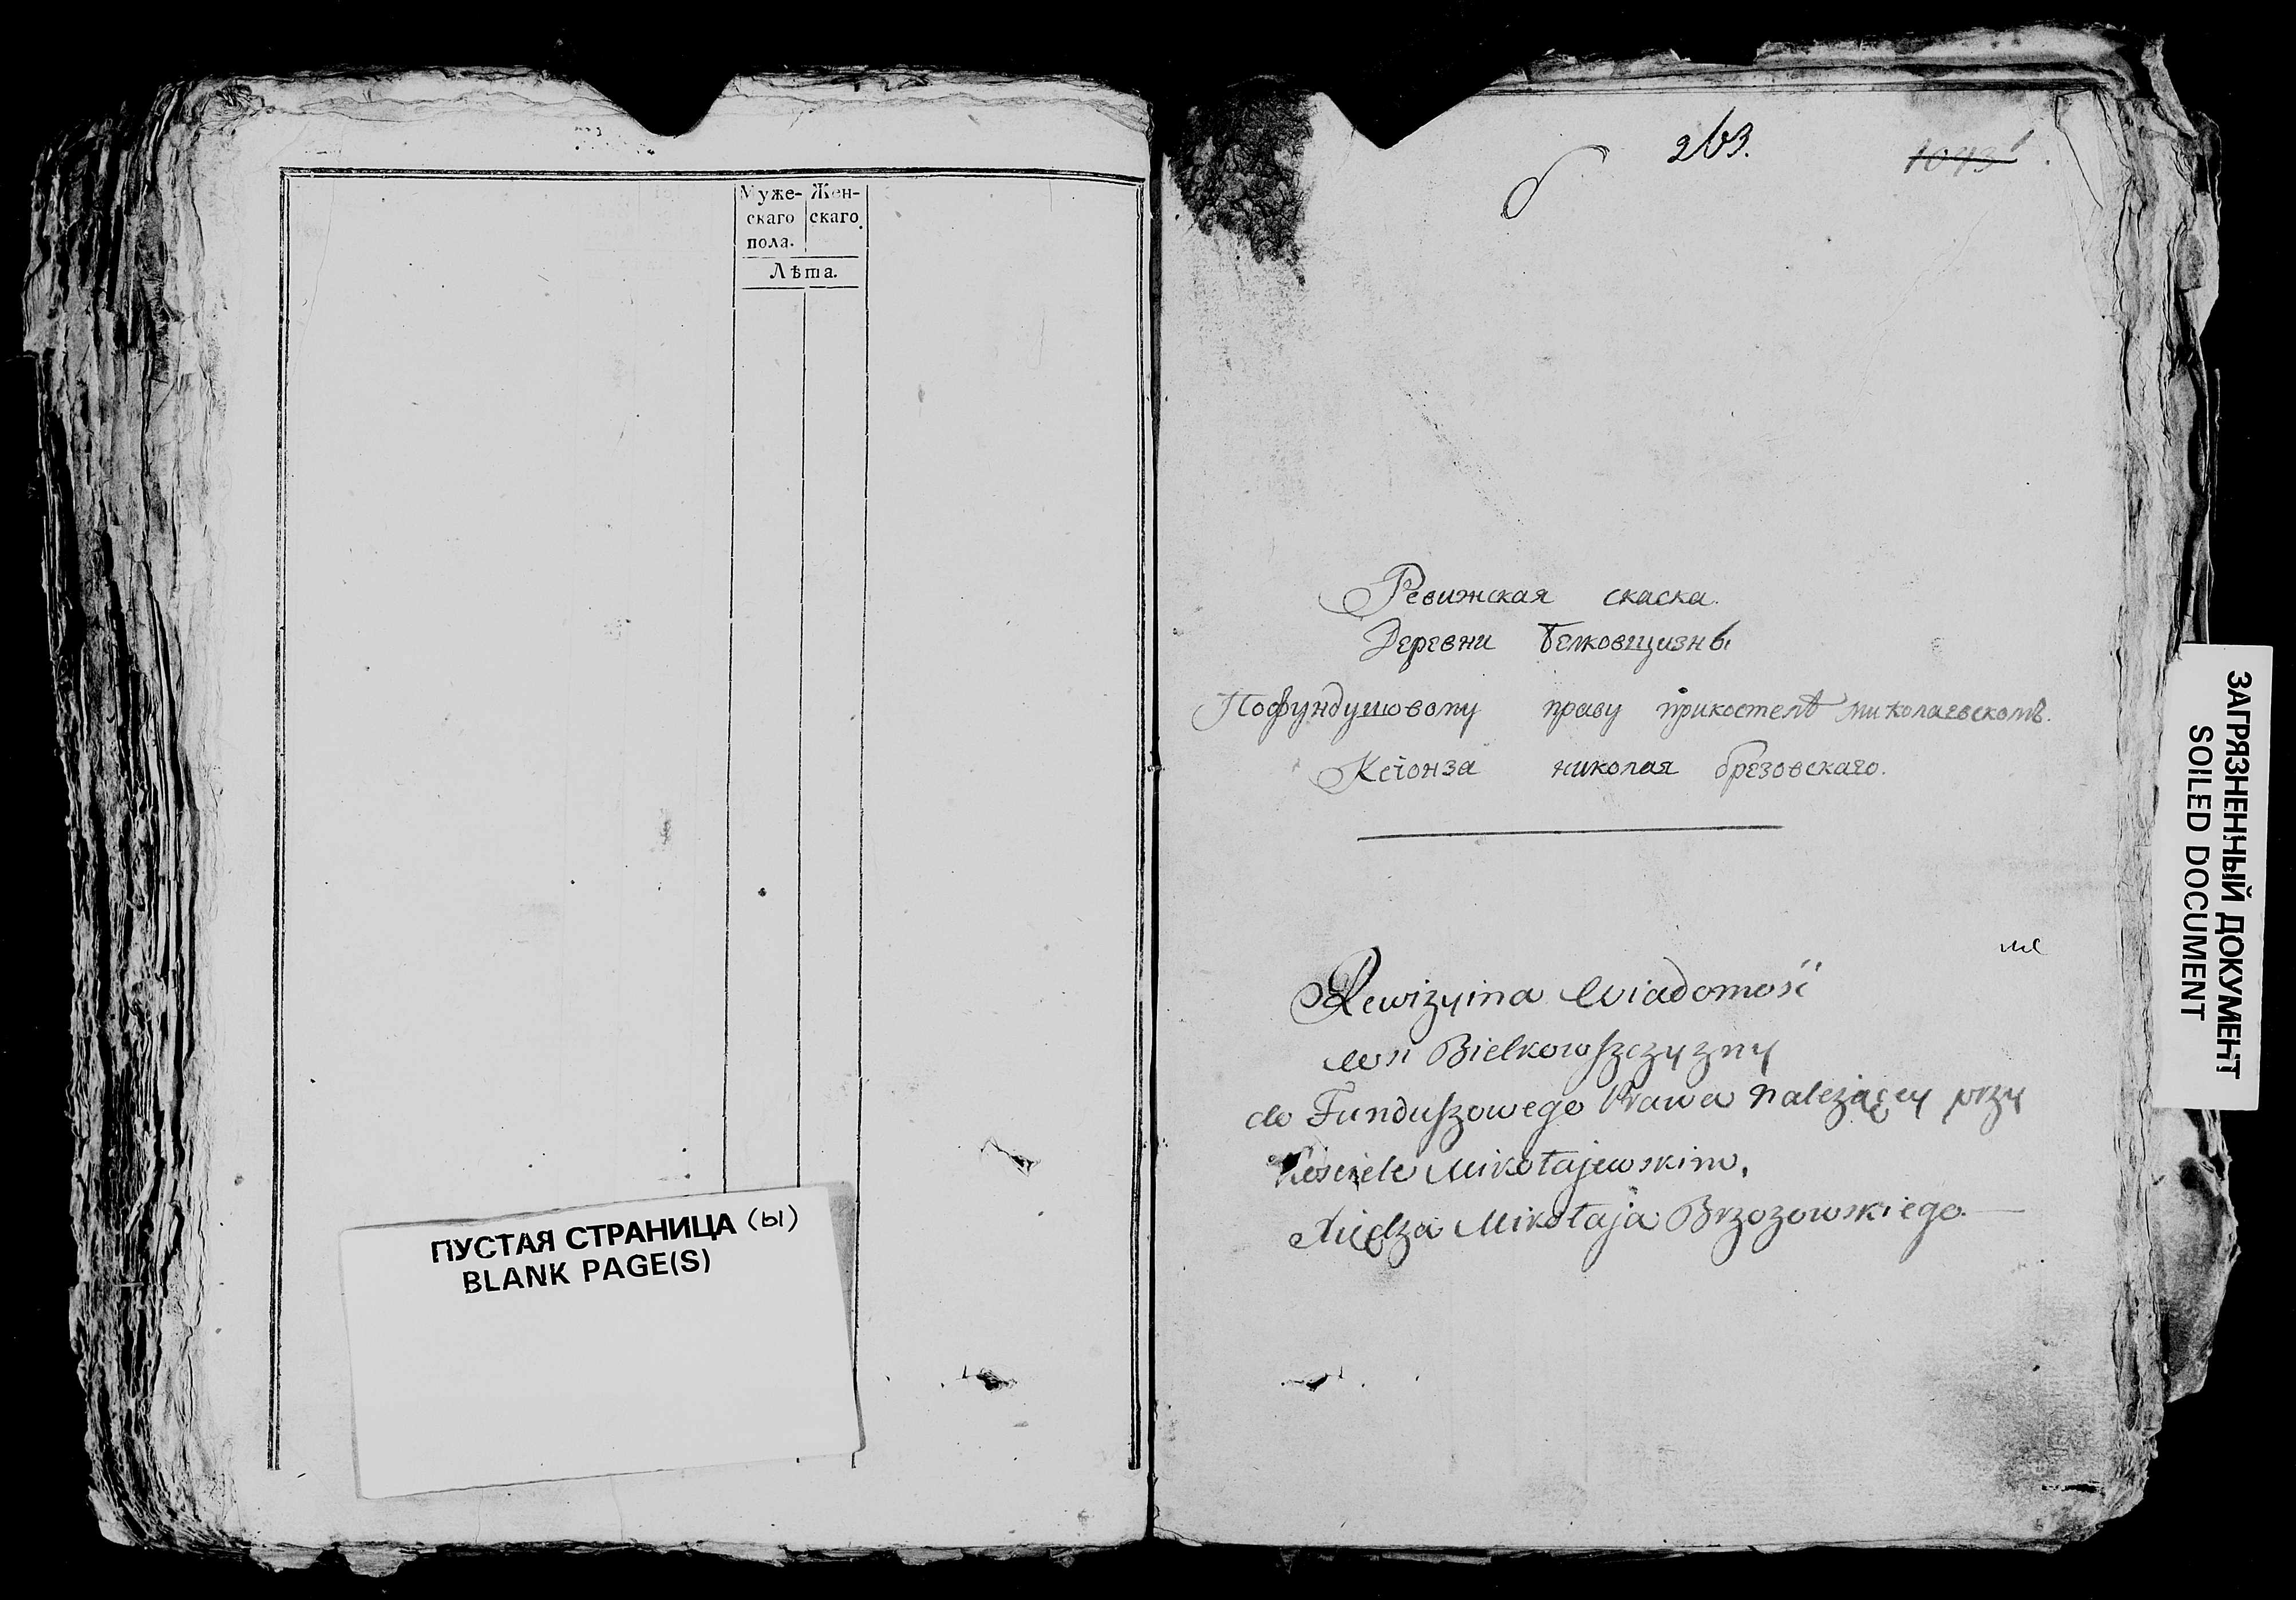 Муже- Жен-
скаго скаго
пола.
Лѣта.
ПУСТАЯ СТРАНИЦА (ы)
BLANK PAGE(S)
263.
1093
Ревижская скаска.
Деревни Белковщизны
Пофундушовому праву прикостелѣ николаевскомъ.
Ксіонза николая брезовскаго.
Rewizyina Wiadomość
wsi Bielkowszczyzny
do Funduszowego Prawa należącey przy
Kościele Mikołajewskim,
Xiędza Mikołaja Brzozowskiego.
ЗАГРЯЗНЕННЫЙ ДОКУМЕНТ
SOILED DOCUMENT